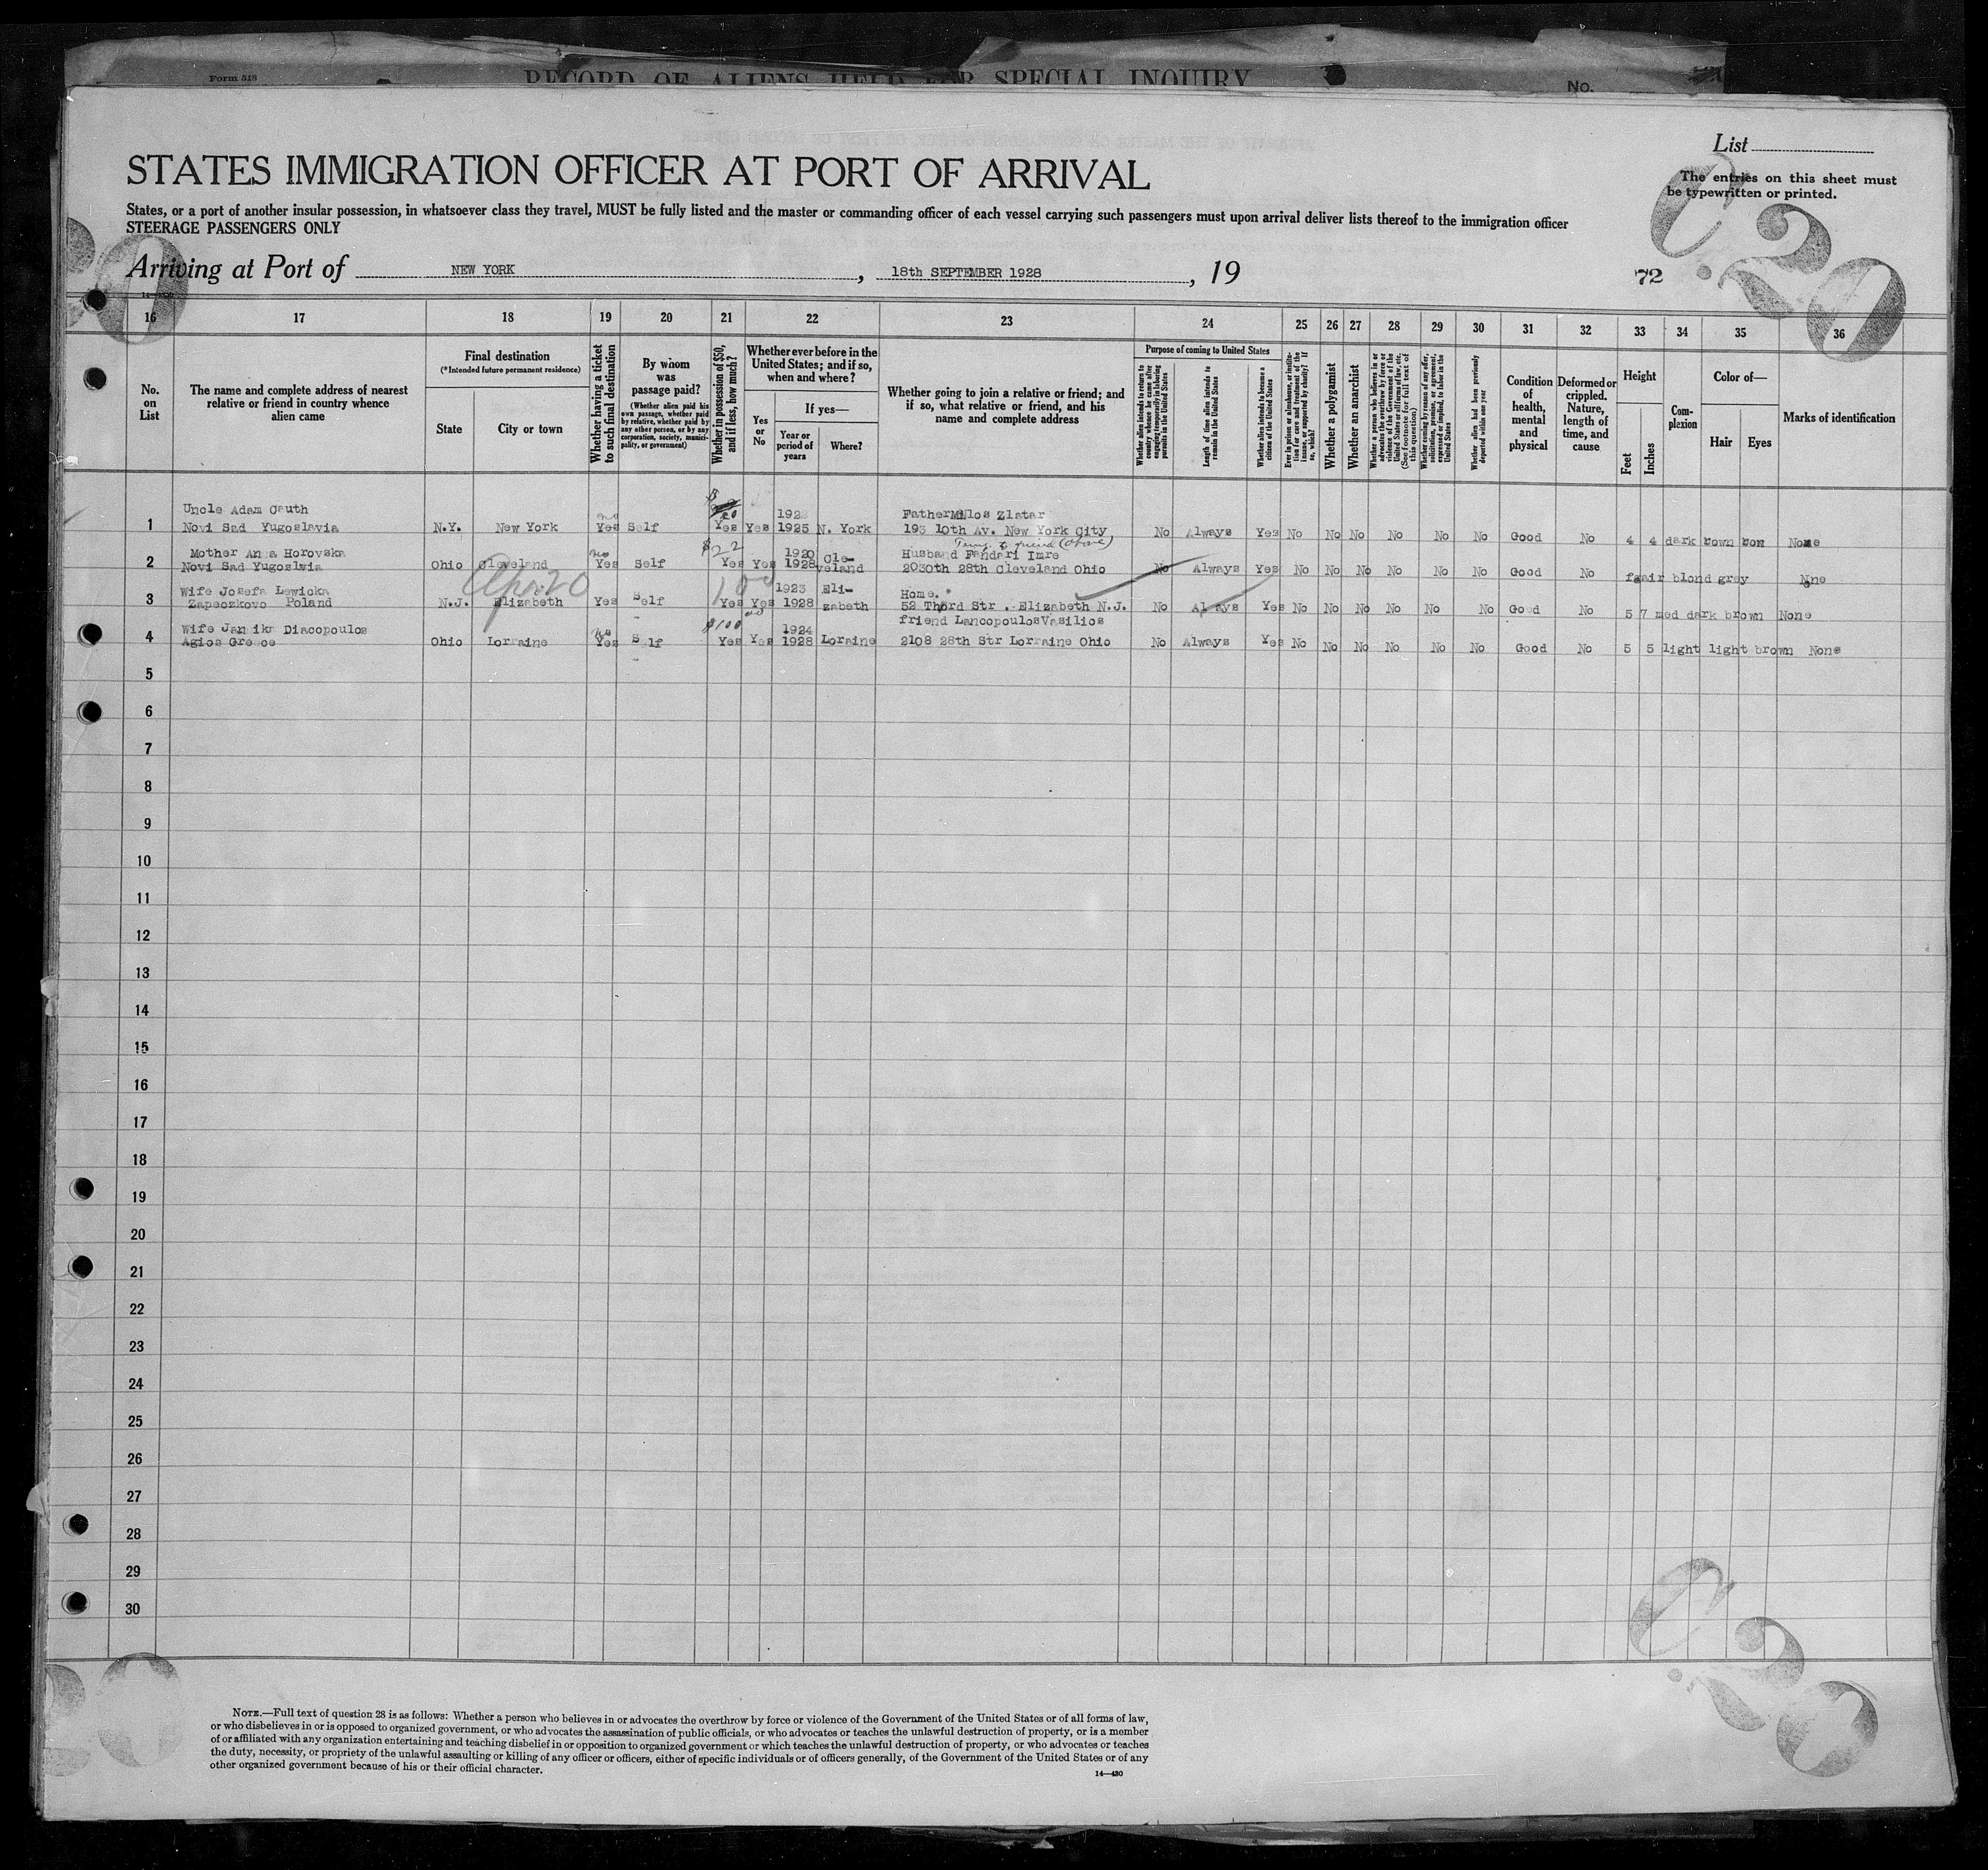 Form 518
RECORD OF ALIENS HELD FOR SPECIAL INQUIRY
No.
List
STATES IMMIGRATION OFFICER AT PORT OF ARRIVAL
The entries on this sheet must
be typewritten or printed.
States, or a port of another insular possession, in whatsoever class they travel, MUST be fully listed and the master or commanding officer of each vessel carrying such passengers must upon arrival deliver lists thereof to the immigration officer
STEERAGE PASSENGERS ONLY
Arriving at Port of NEW YORK, 18th SEPTEMBER 1928, 19
72
C.20
16 17 18 19 20 21 22 23 24 25 26 27 28 29 30 31 32 33 34 35 36
No. on List
The name and complete address of nearest relative or friend in country whence alien came
Final destination
(*Intended future permanent residence)
State
City or town
Whether having a ticket to such final destination
By whom was passage paid?
(Whether alien paid his own passage, whether paid by relative, whether paid by any other person, or by any corporation, society, municipality, or government)
Whether in possession of $50, and if less, how much?
Whether ever before in the United States; and if so, when and where?
Yes or No
If yes—
Year or period of years
Where?
Whether going to join a relative or friend; and if so, what relative or friend, and his name and complete address
Purpose of coming to United States
Whether alien intends to return to country whence he came after engaging temporarily in laboring pursuits in the United States
Length of time alien intends to remain in the United States
Whether alien intends to become a citizen of the United States
Ever in prison or almshouse, or institution for care and treatment of the insane, or supported by charity? If so, which?
Whether a polygamist
Whether an anarchist
Whether a person who believes in or advocates the overthrow by force or violence of the Government of the United States or all forms of law, etc. (See footnote for full text of this question)
Whether coming by reason of any offer, solicitation, promise, or agreement, expressed or implied, to labor in the United States
Whether alien had been previously deported within one year
Condition of health, mental and physical
Deformed or crippled. Nature, length of time, and cause
Height
Feet
Inches
Complexion
Color of—
Hair
Eyes
Marks of identification
Uncle Adam Cauth 192 Father Milos Zlatar
1 Novi Sad Yugoslavia N.Y. New York no Yes Self $ 20 Yes Yes 1925 N. York 193 10th Av. New York City No Always Yes No No No No No No Good No 4 4 dark bown bon None
Temp. to friend (above)
Mother Anna Horovska 1920 Cle- Husband Fandari Imre
2 Novi Sad Yugoslvia Ohio Cleveland no Yes Self $22 Yes Yes 1928 veland 2030th 28th Cleveland Ohio No Always Yes No No No No No No Good No fair blond gray None
Wife Josefa Lewicka 100 1923 Eli- Home.
3 Zapeozkovo Poland N.J. Elizabeth Yes Self Yes Yes 1928 zabeth 52 Thord Str . Elizabeth N.J. No Always Yes No No No No No No Good No 5 7 med dark brown None
Wife Janiika Diacopoulos $100 1924 friend LancopoulosVasilios
4 Agios Greece Ohio Lorraine no Yes Self Yes Yes 1928 Loraine 2108 28th Str Lorraine Ohio No Always Yes No No No No No No Good No 5 5 light light brown None
5
6
7
8
9
10
11
12
13
14
15
16
17
18
19
20
21
22
23
24
25
26
27
28
29
30
C.20
NOTE.—Full text of question 28 is as follows: Whether a person who believes in or advocates the overthrow by force or violence of the Government of the United States or of all forms of law,
or who disbelieves in or is opposed to organized government, or who advocates the assassination of public officials, or who advocates or teaches the unlawful destruction of property, or is a member
of or affiliated with any organization entertaining and teaching disbelief in or opposition to organized government or which teaches the unlawful destruction of property, or who advocates or teaches
the duty, necessity, or propriety of the unlawful assaulting or killing of any officer or officers, either of specific individuals or of officers generally, of the Government of the United States or of any
other organized government because of his or their official character.
14—430